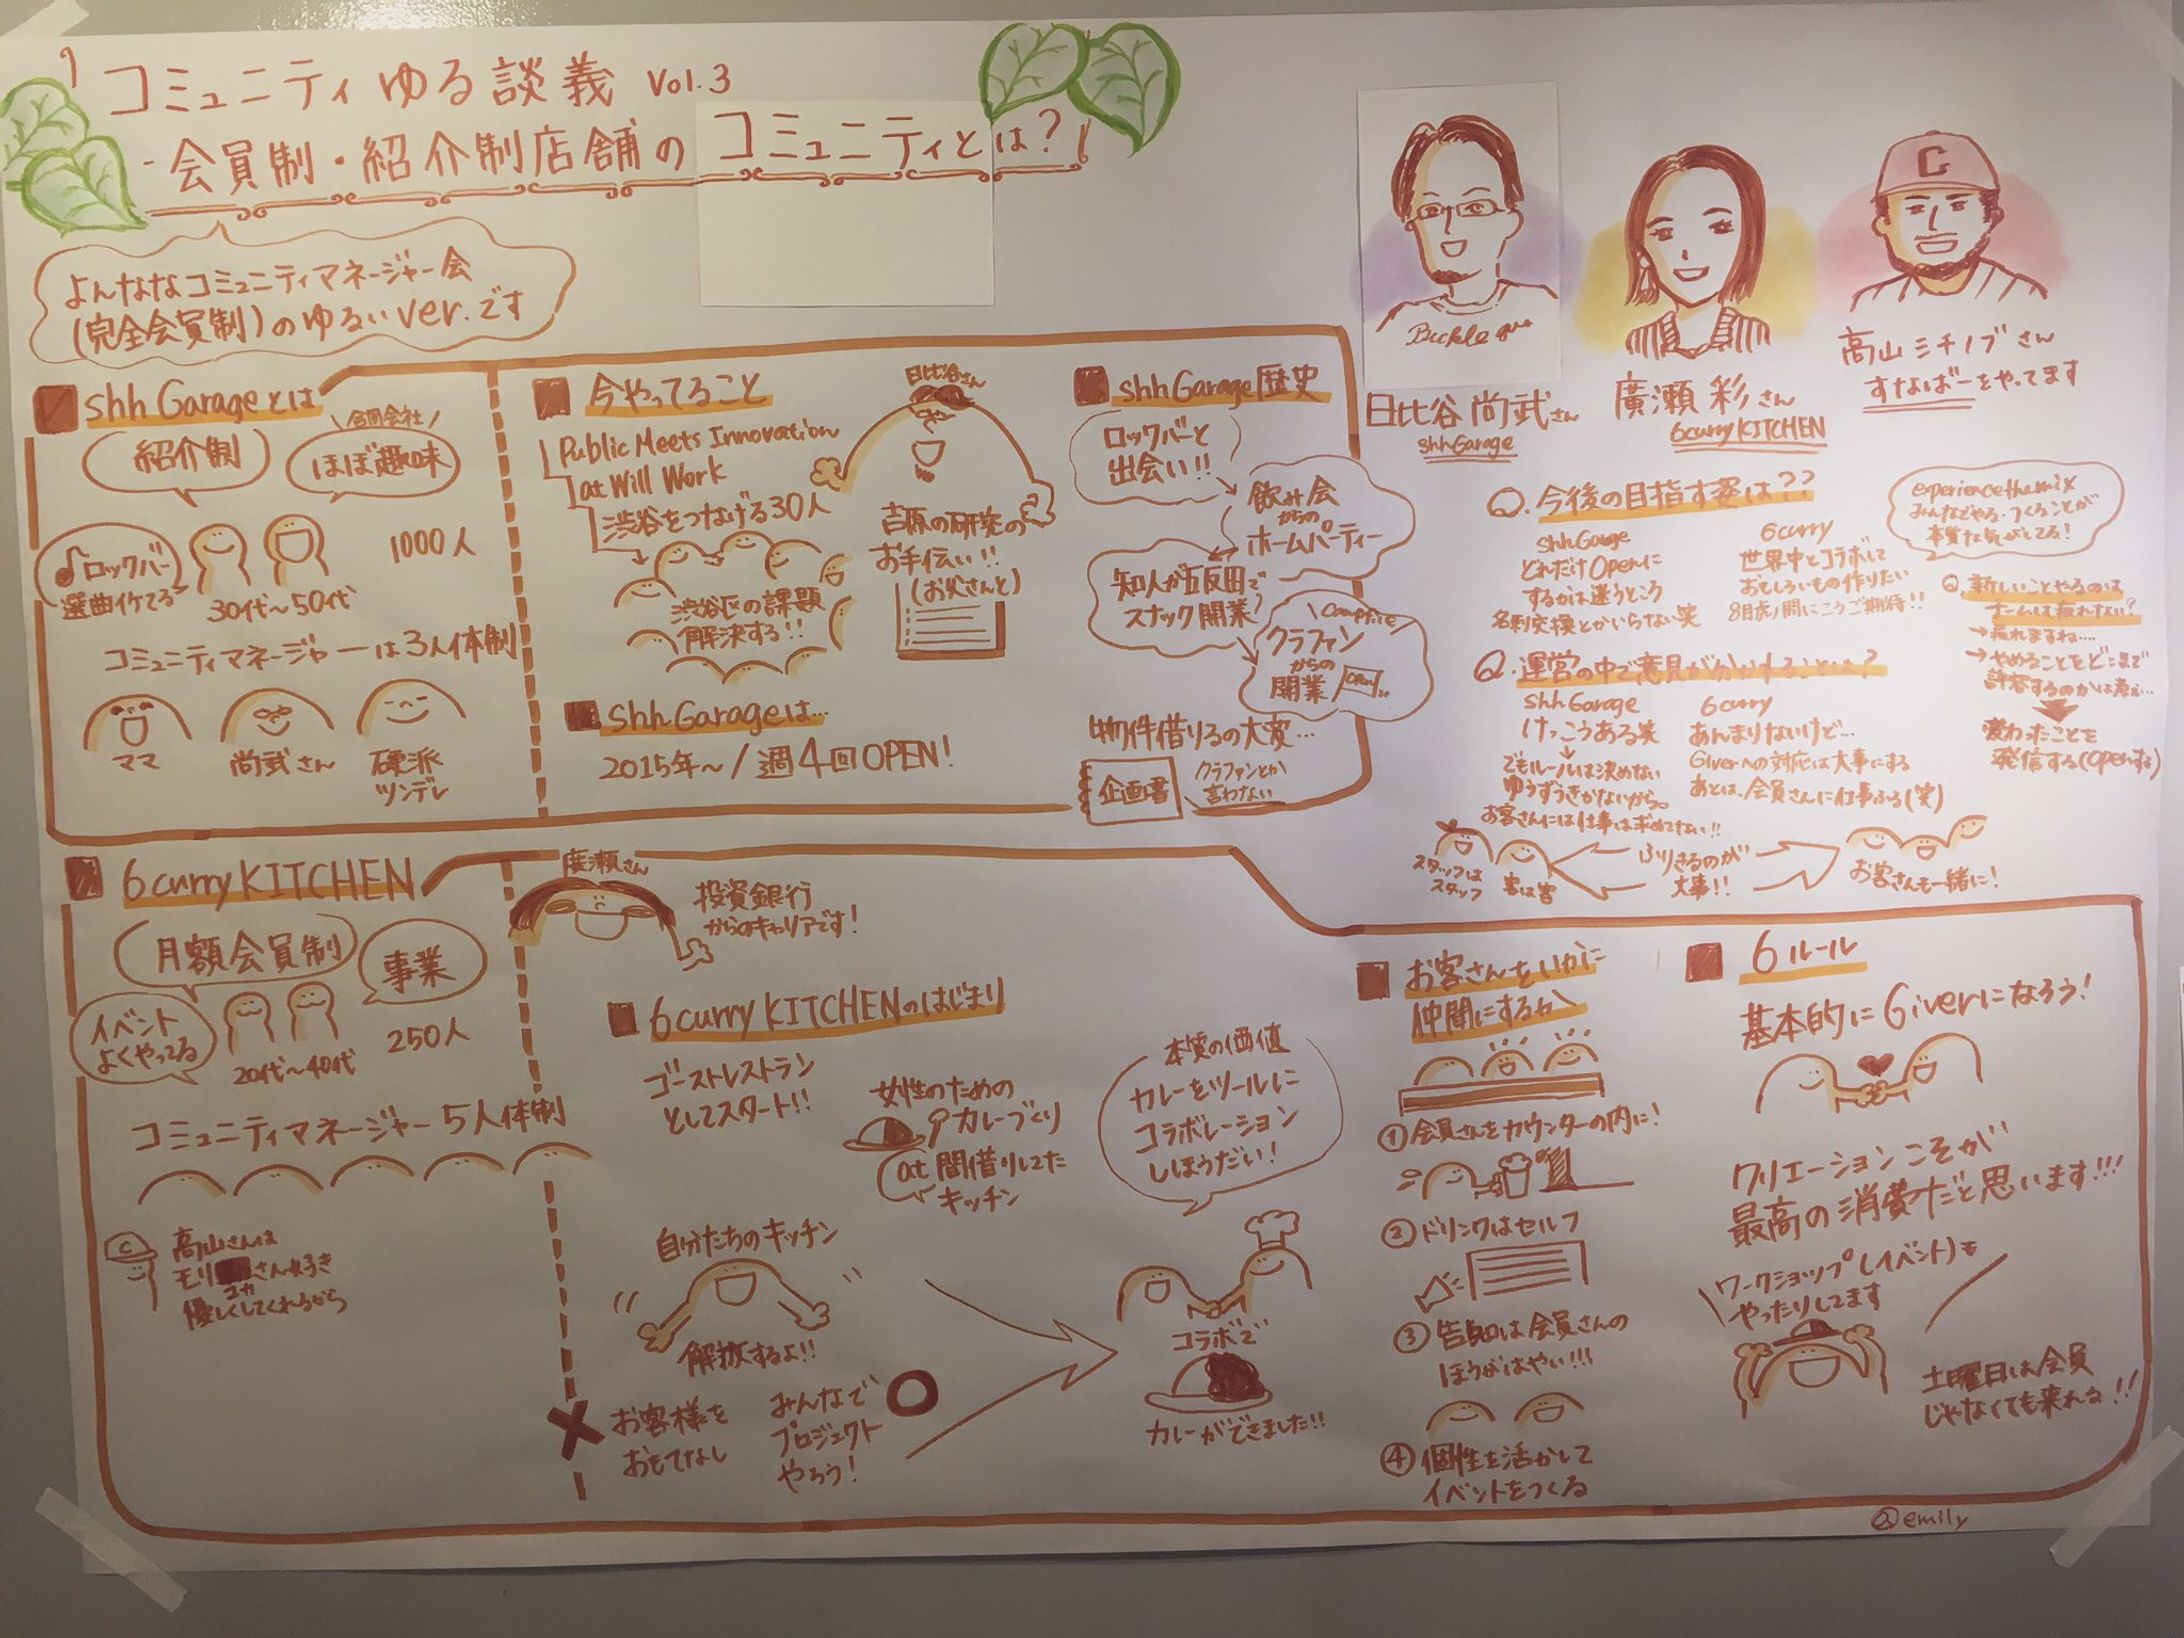 コミュニティゆる談義 Vol.3
-会員制・紹介制店舗のコミュニティとは?
よんななコミュニティマネージャー会
(完全会員制)のゆるいver.です
Buckle
日比谷 尚武さん
shhGarage
廣瀬 彩さん
6curryKITCHEN
高山ミチノブさん
すなばーをやってます
shhGarageとは
紹介制
合同会社
ほぼ趣味
ロックバー
選曲イケてる
30代〜50代
1000人
コミュニティマネージャーは3人体制
ママ
尚武さん
硬派
ツンデレ
今やってること
Public Meets Innovation
at Will Work
渋谷をつなげる30人
渋谷区の課題
解決する!!
日比谷さん
吉原の研究の
お手伝い!!
(お父さんと)
shhGarageは…
2015年〜/週4回OPEN!
shhGarage歴史
ロックバーと
出会い!!
飲み会
からの
ホームパーティー
知人が五反田で
スナック開業?
Campfire
クラファン
からの
開業
OPEN
物件借りるの大変…
企画書
クラファンとか
言わない
Q.今後の目指す姿は??
shhGarage
どれだけOpenに
するかは迷うところ
名刺交換とかいらない笑
6curry
世界中とコラボして
おもしろいもの作りたい
8月虎ノ門にこうご期待!!
experiencethemix
みんなでやる・つくることが
本質な気がしてる!
Q.新しいことやるのは
チームは疲れない?
→疲れますね…
→やめることをどこまで
許容するのかは考え…
変わったことを
発信する(Openする)
Q.運営の中で意見が分かれることは?
shhGarage
けっこうある笑
でもルールは決めない
ゆうずうきかないから。
お客さんには仕事は求めてない!!
6curry
あんまりないけど…
Giverへの対応は大事にする
あとは、会員さんに仕事ふる(笑)
スタッフは
スタッフ
客は客
ふりきるのが
大事!!
お客さんも一緒に!
6curryKITCHEN
月額会員制
事業
イベント
よくやってる
20代〜40代
250人
コミュニティマネージャー5人体制
高山さんは
モリ
さん好き
コカ
優しくしてくれるから
廣瀬さん
投資銀行
からのキャリアです!
6curryKITCHENのはじまり
ゴーストレストラン
としてスタート!!
女性のための
カレーづくり
at 間借りしてた
キッチン
本質の価値
カレーをツールに
コラボレーション
しほうだい!
自分たちのキッチン
解放するよ!!
お客様を
おもてなし
みんなで
プロジェクト
やろう!
コラボで
カレーができました!!
お客さんをいかに
仲間にするか
①会員さんをカウンターの内に!
②ドリンクはセルフ
③告知は会員さんの
ほうがはやい!!!
④個性を活かして
イベントをつくる
6ルール
基本的にGiverになろう!
クリエーションこそが
最高の消費だと思います!!!
ワークショップ(イベント)も
やったりしてます
土曜日は会員
じゃなくても来れる!!
emily